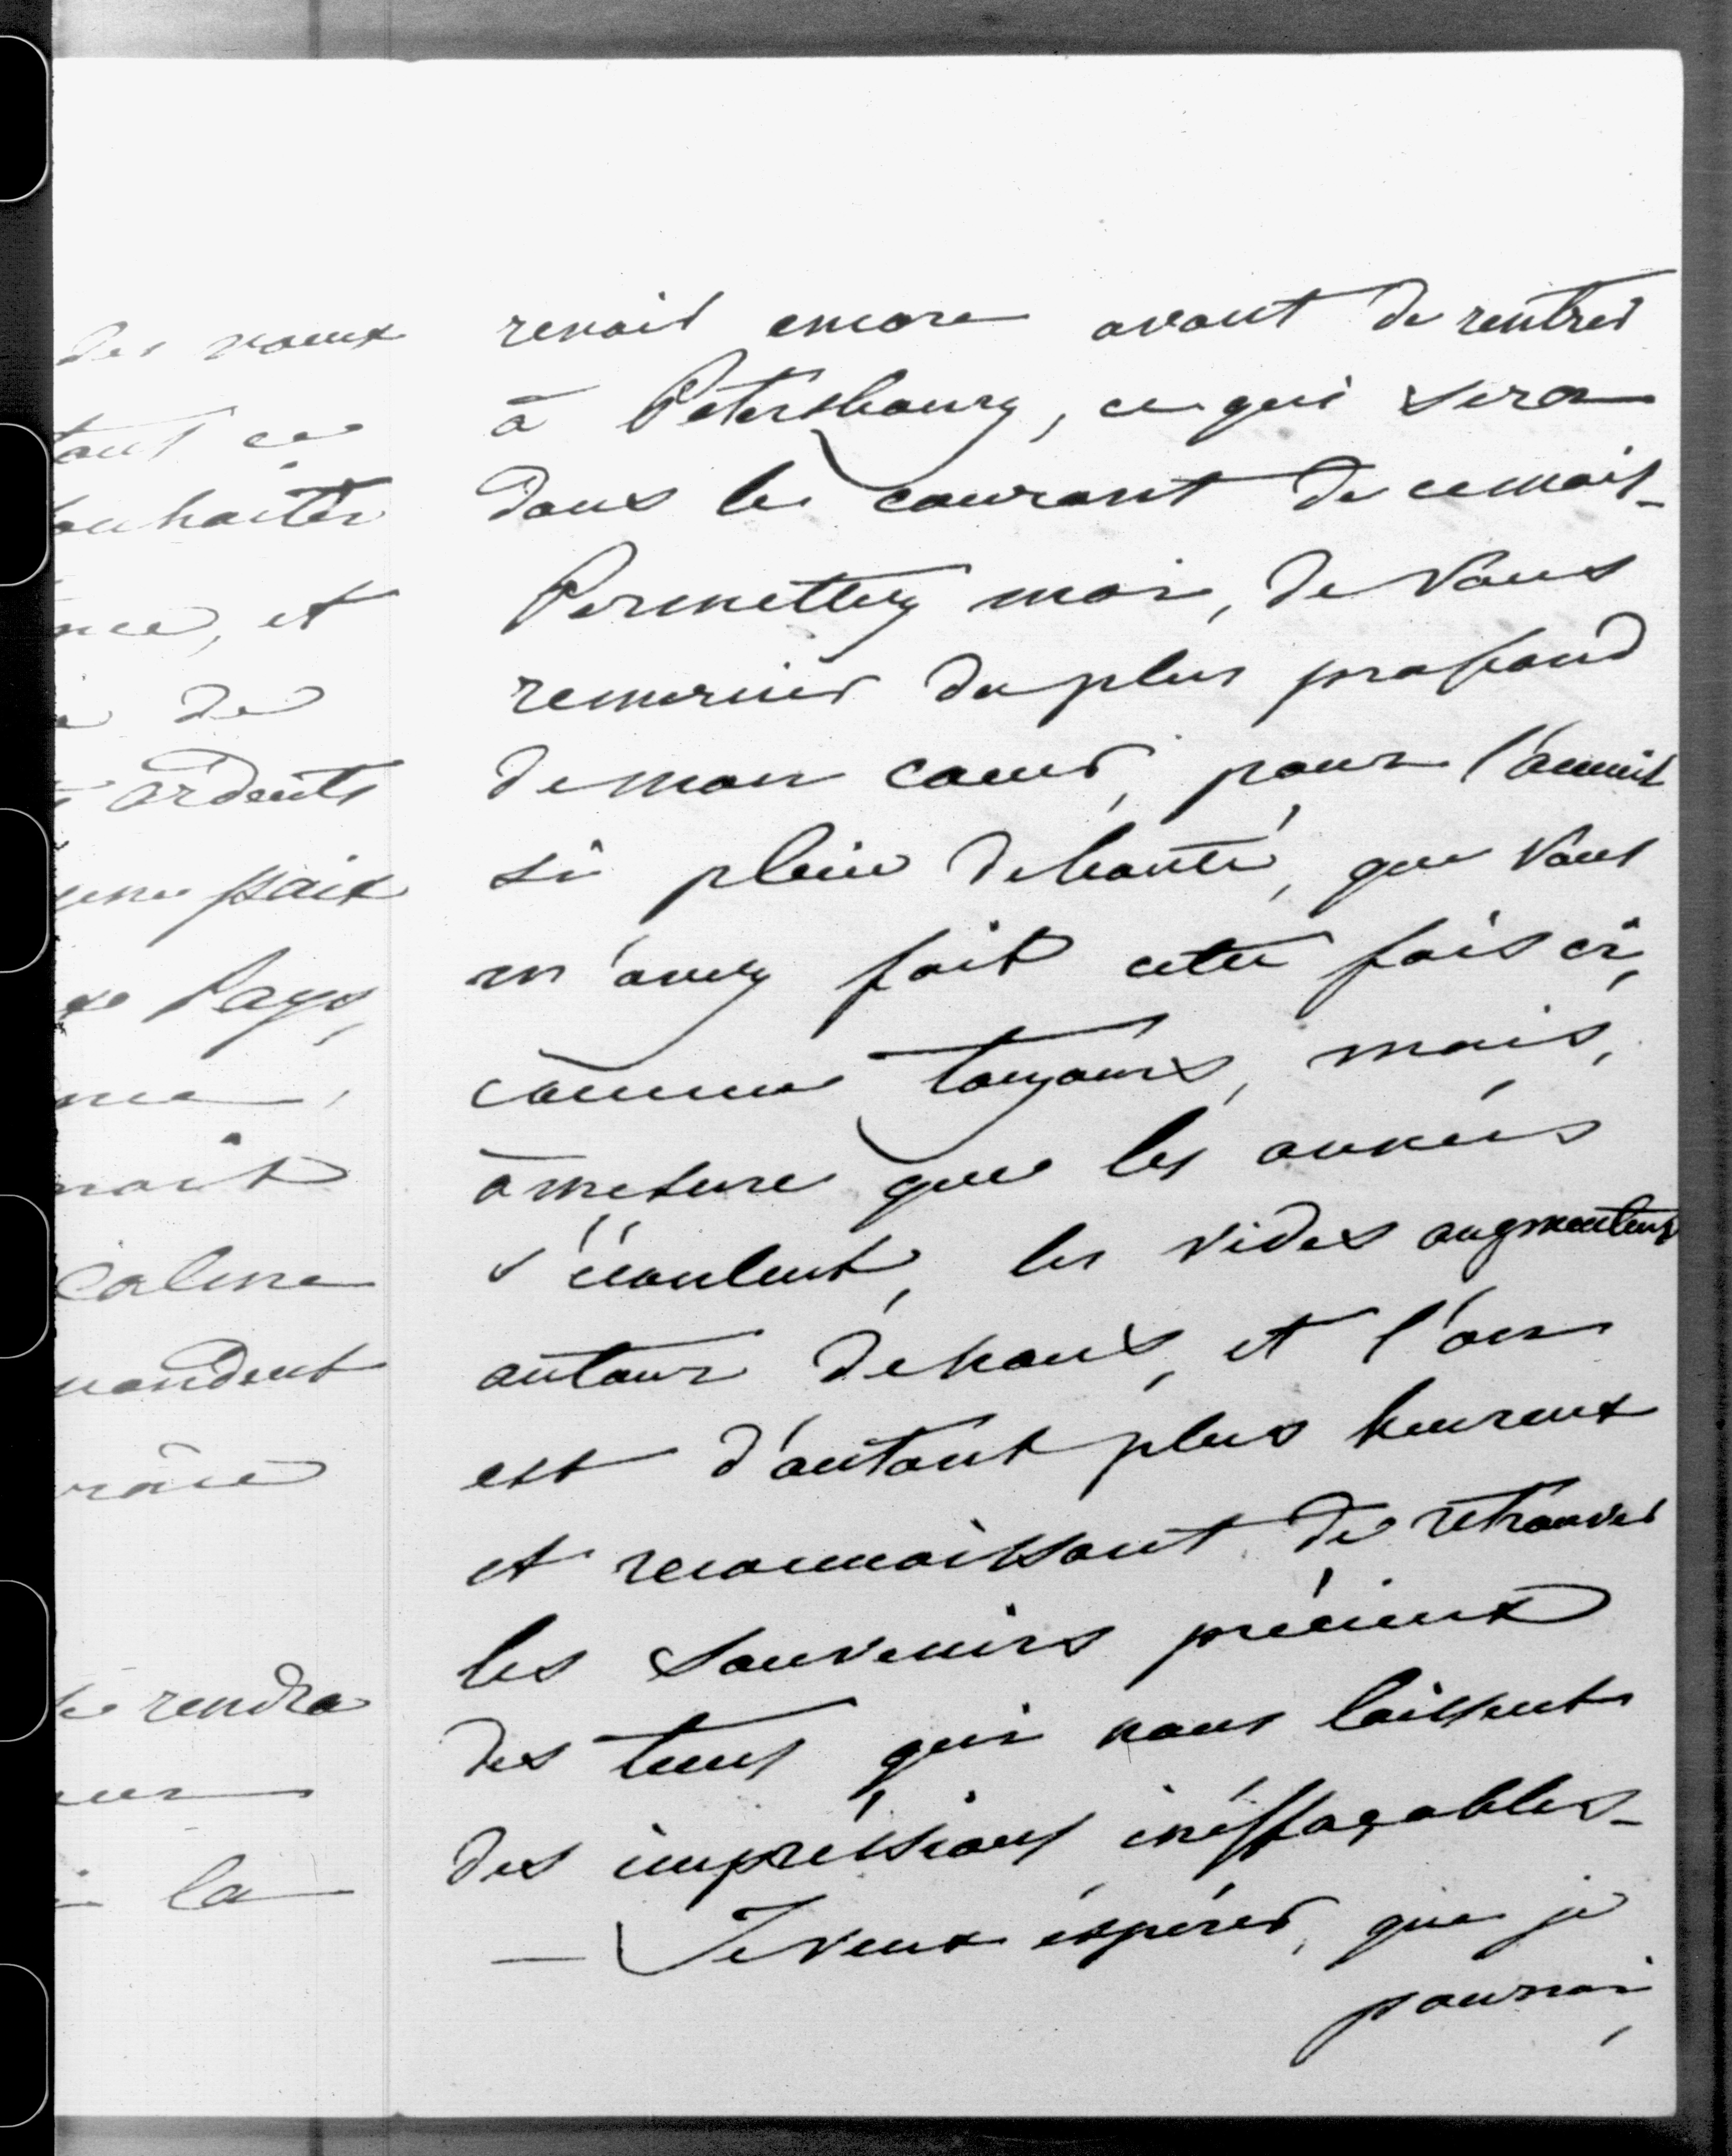 des vœux
tout ce
souhaiter
nce, et
de
ardents
une paix
Pays,
me,
noit
Calme
pondent
râce
rendra
la
revoir encore avant de rentrer
à Pétersbourg, ce qui sera
dans le courant de ce mois_
Permettez moi, de Vous
remercier du plus profond
de mon cœur, pour l'acceuil
si plein de bonté, que Vous
m'avez fait cette fois ci,
comme toujours, mais,
à mesure que les années
s'écoulent, les vides augmentent
autour de nous, et l'on
est d'autant plus heureux
et reconnaissant de retrouver
les souvenirs précieux
des tems qui nous laissent
des impréssions inéffaçables_
— Je veux éspérer, que je
pourrai,